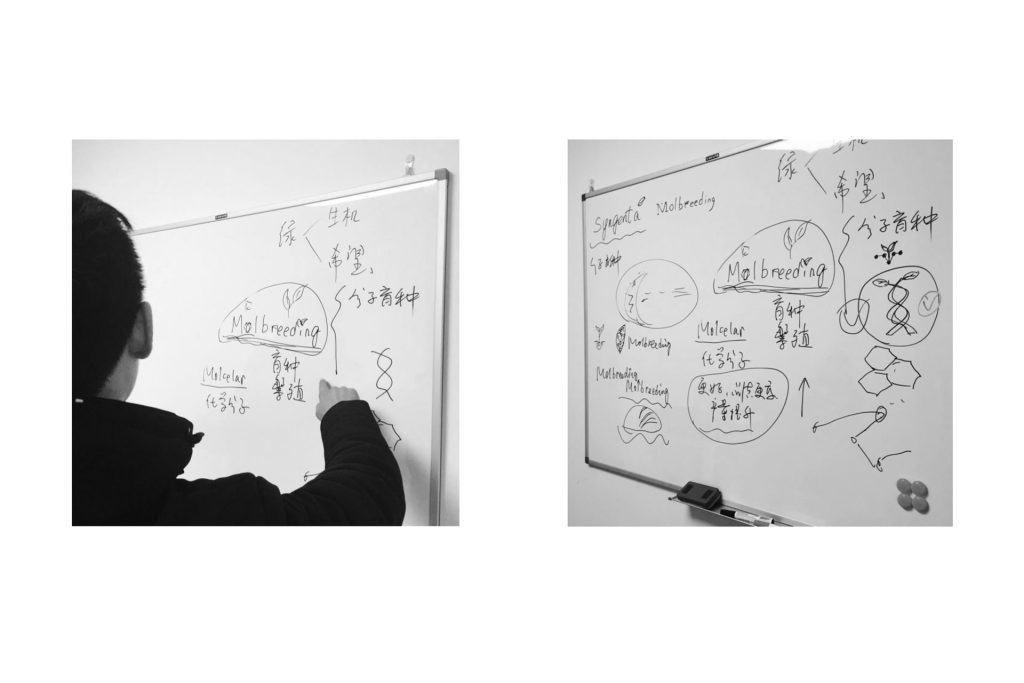 绿
生机
希望、
分子育种
Molbreeding
育种
繁殖
Molcelar
化学分子
绿
生机
希望、
分子育种
Syngenta
Molbreeding
分子育种
Molbreeding
育种
繁殖
Molcelar
化学分子
Molbreeding
Molbreeding
Molbreeding
产量提升